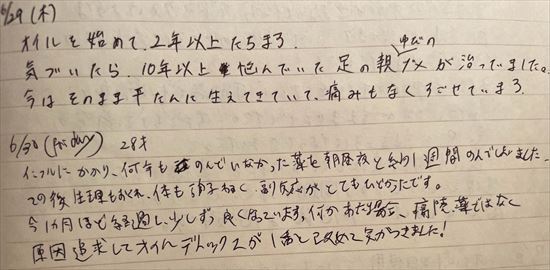 6/29 (木)
オイルを始めて、2年以上たちます。
気づいたら、10年以上悩んでいた足の親ゆびのツメが治っていました。
今はそのまま平たんに生えてきていて、痛みもなくすごせています。
6/30 (Friday) 28才
インフルにかかり、何年ものんでいなかった薬を朝昼夜と約1週間のんでしまいました。
その後生理もおくれ、体も調子わるく、副反応がとてもひどかったです。
今1カ月ほど経過し、少しずつ良くなっています。何かあった場合、病院、薬ではなく
原因追求してオイルデトックスが1番と改めて気がつきました!